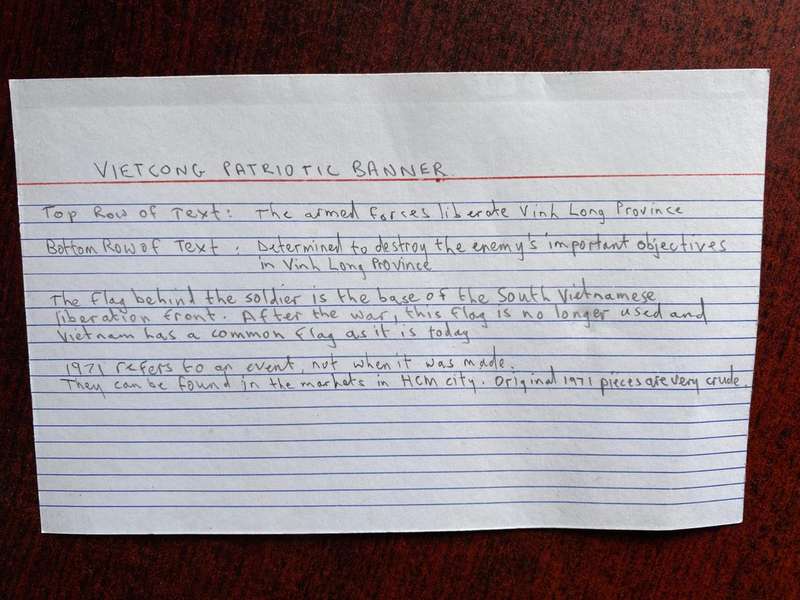 VIETCONG PATRIOTIC BANNER
Top Row of Text: The armed forces liberate Vinh Long Province
Bottom Row of Text. Determined to destroy the enemy's important objectives
in Vinh Long Province
The flag behind the soldier is the base of the South Vietnamese
liberation front. After the war, this flag is no longer used and
Vietnam has a common flag as it is today
1971 refers to an event, not when it was made.
They can be found in the markets in HCM city. Original 1971 pieces are very crude.